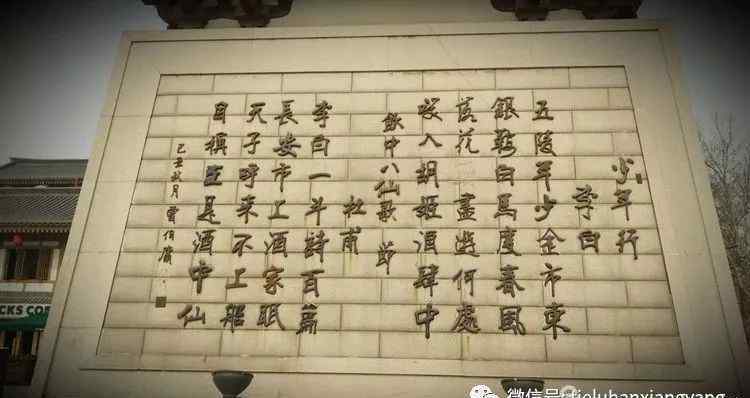 少年行
李白
五陵年少金市東
銀鞍白馬度春風
落花 盡遊何處
咲入胡姬酒肆中
飲中八仙歌 節
杜甫
李白一斗詩百篇
長安市上酒家眠
天子呼來不上船
自稱臣是酒中仙
己丑秋月
CKS COF
微信号: tieluhanxiangyang